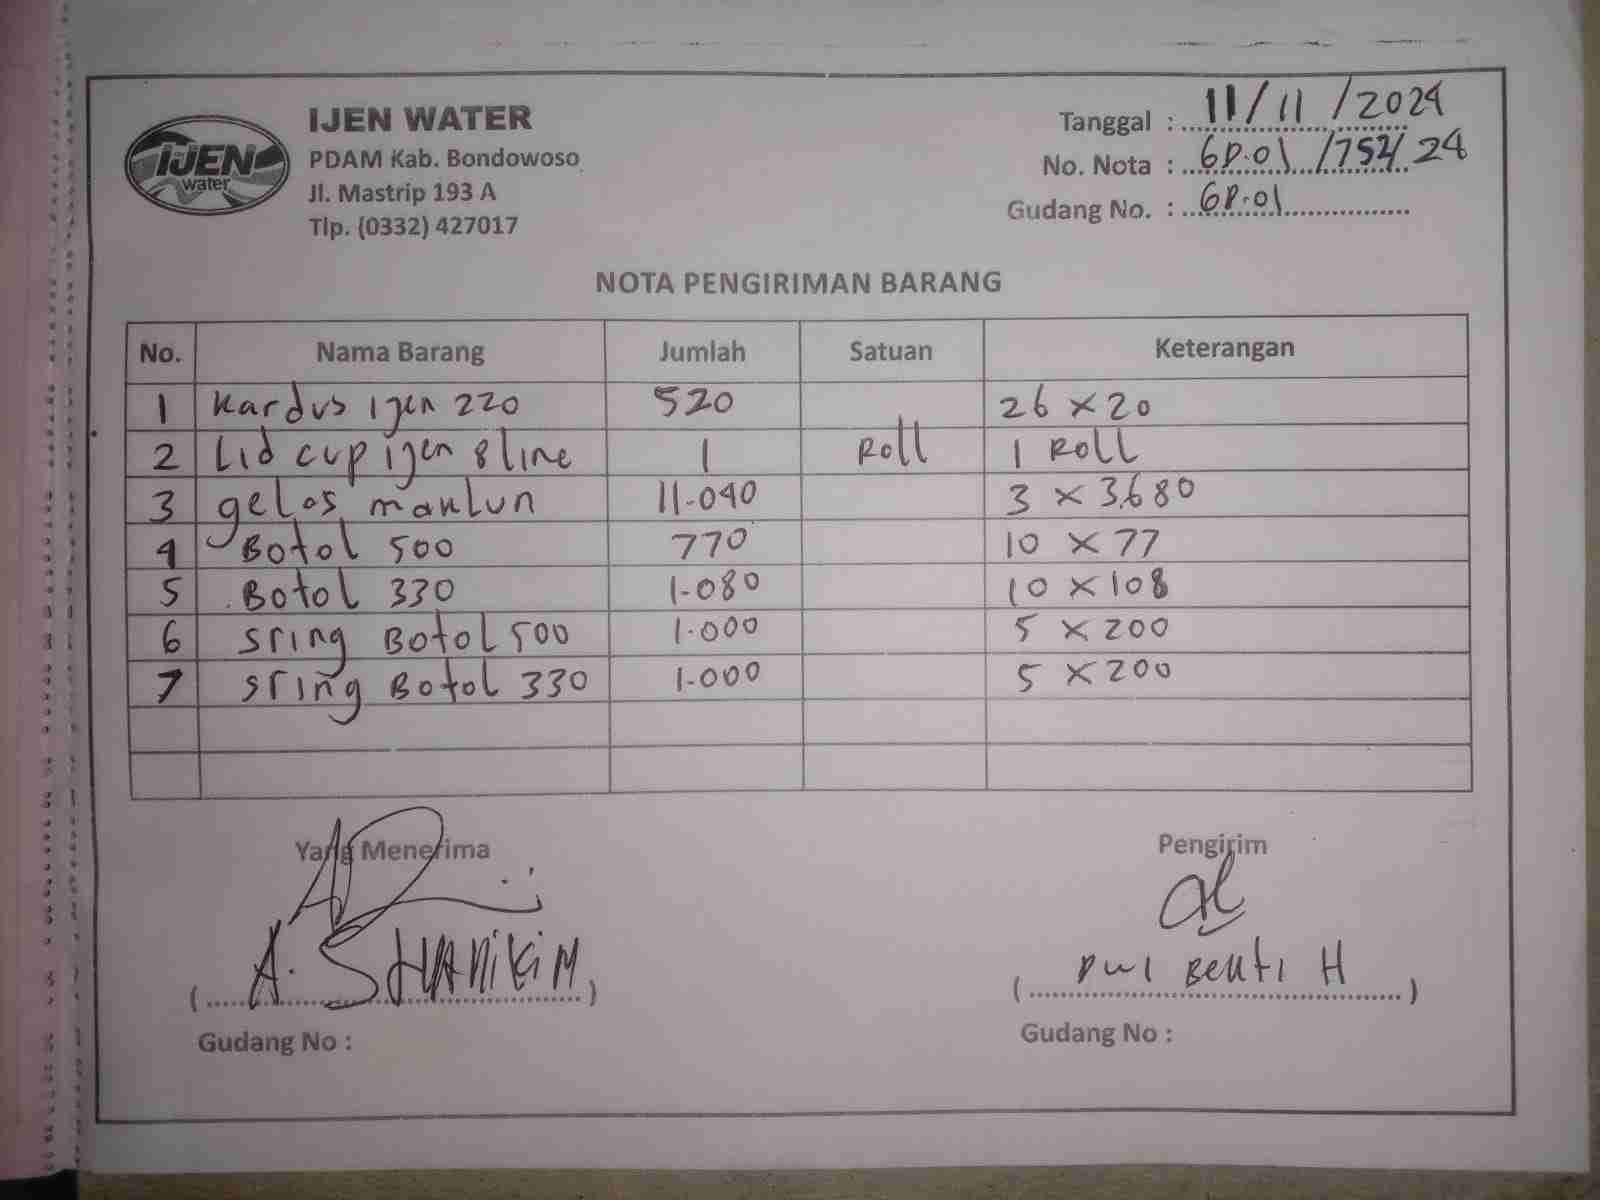 IJEN
water
IJEN WATER
PDAM Kab. Bondowoso
Jl. Mastrip 193 A
Tlp. (0332) 427017
Tanggal : 11/11/2024
No. Nota : GD.01/752/24
Gudang No. : GD.01
NOTA PENGIRIMAN BARANG
No. Nama Barang Jumlah Satuan Keterangan
1 Kardus ijen 220 520 26 x 20
2 Lid cup ijen 8 line 1 Roll 1 Roll
3 gelas maklun 11.040 3 x 3.680
4 Botol 500 770 10 x 77
5 Botol 330 1.080 10 x 108
6 sring Botol 500 1.000 5 x 200
7 sring Botol 330 1.000 5 x 200
Yang Menerima Pengirim
(A.) (Dwi H)
Gudang No : Gudang No :